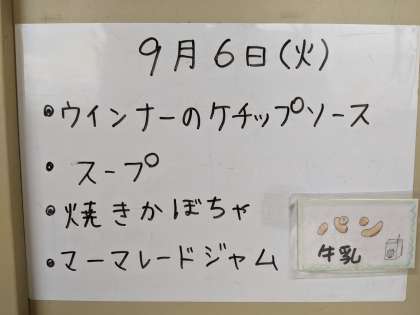 9月6日(火)
・ウインナーのケチップソース
・スープ
・焼きかぼちゃ
・マーマレードジャム
パン
牛乳